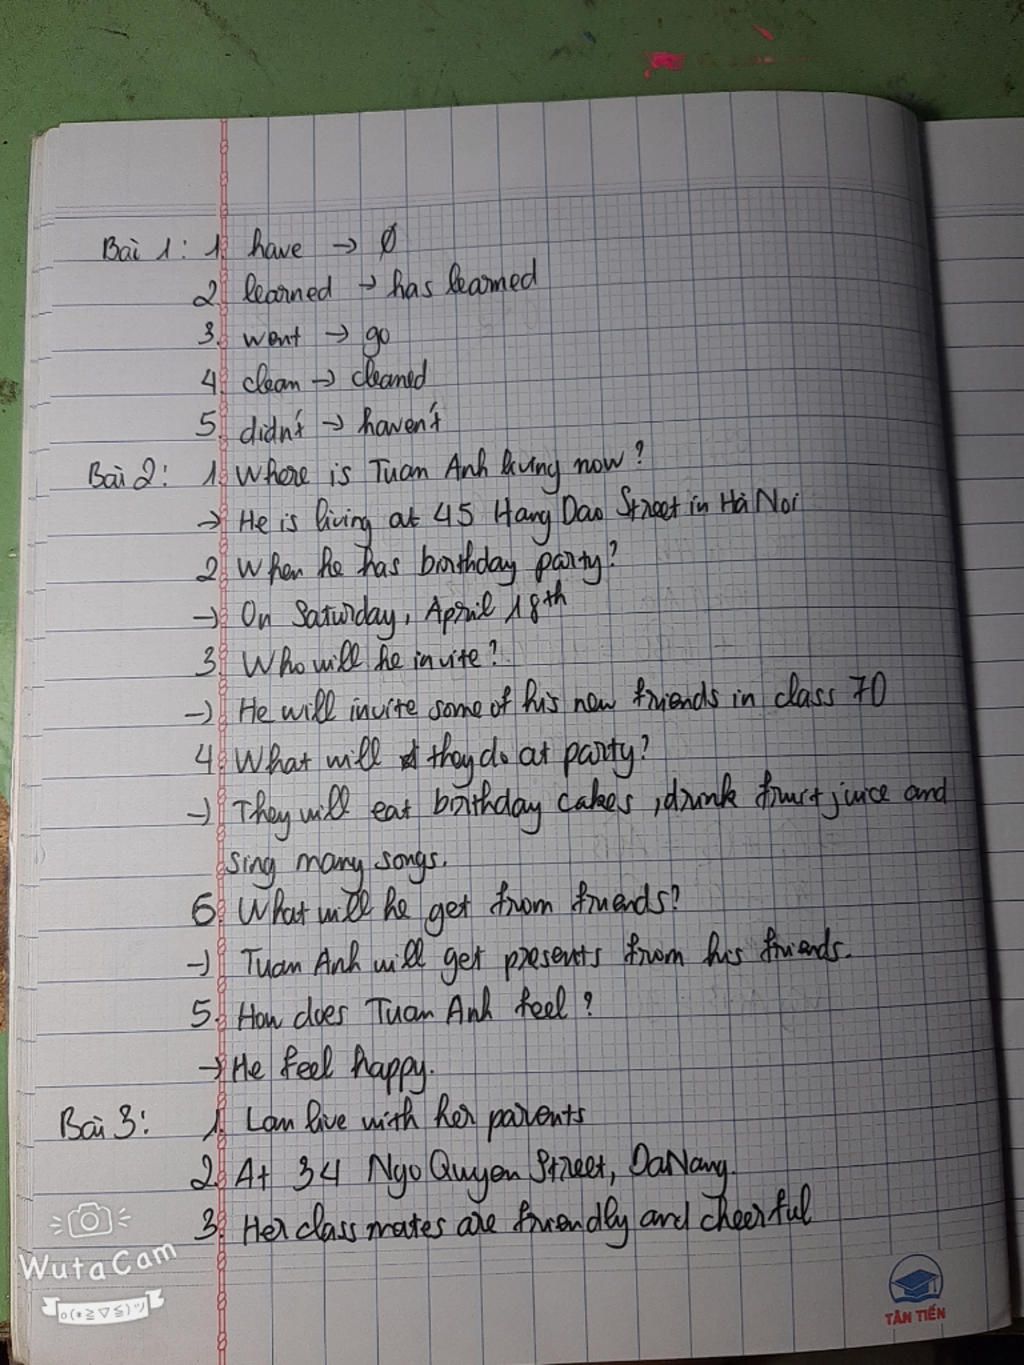 Bài 1: 1. have → Ø
2. learned → has learned
3. went → go
4. clean → cleaned
5. didn't → haven't
Bài 2: 1. Where is Tuan Anh living now?
→ He is living at 45 Hang Dao Street in Hà Noi
2. When he has birthday party?
→ On Saturday, April 18th
3. Who will he invite?
→ He will invite some of his new friends in class 70
4. What will they do at party?
→ They will eat birthday cakes, drink fruit juice and
sing many songs.
6. What will he get from friends?
→ Tuan Anh will get presents from his friends.
5. How does Tuan Anh feel?
→ He feel happy.
Bài 3: 1. Lan live with her parents
2. At 34 Ngo Quyen Street, DaNang.
3. Her classmates are friendly and cheerful
WutaCam
o(*≧▽≦)ツ
TÂN TIẾN